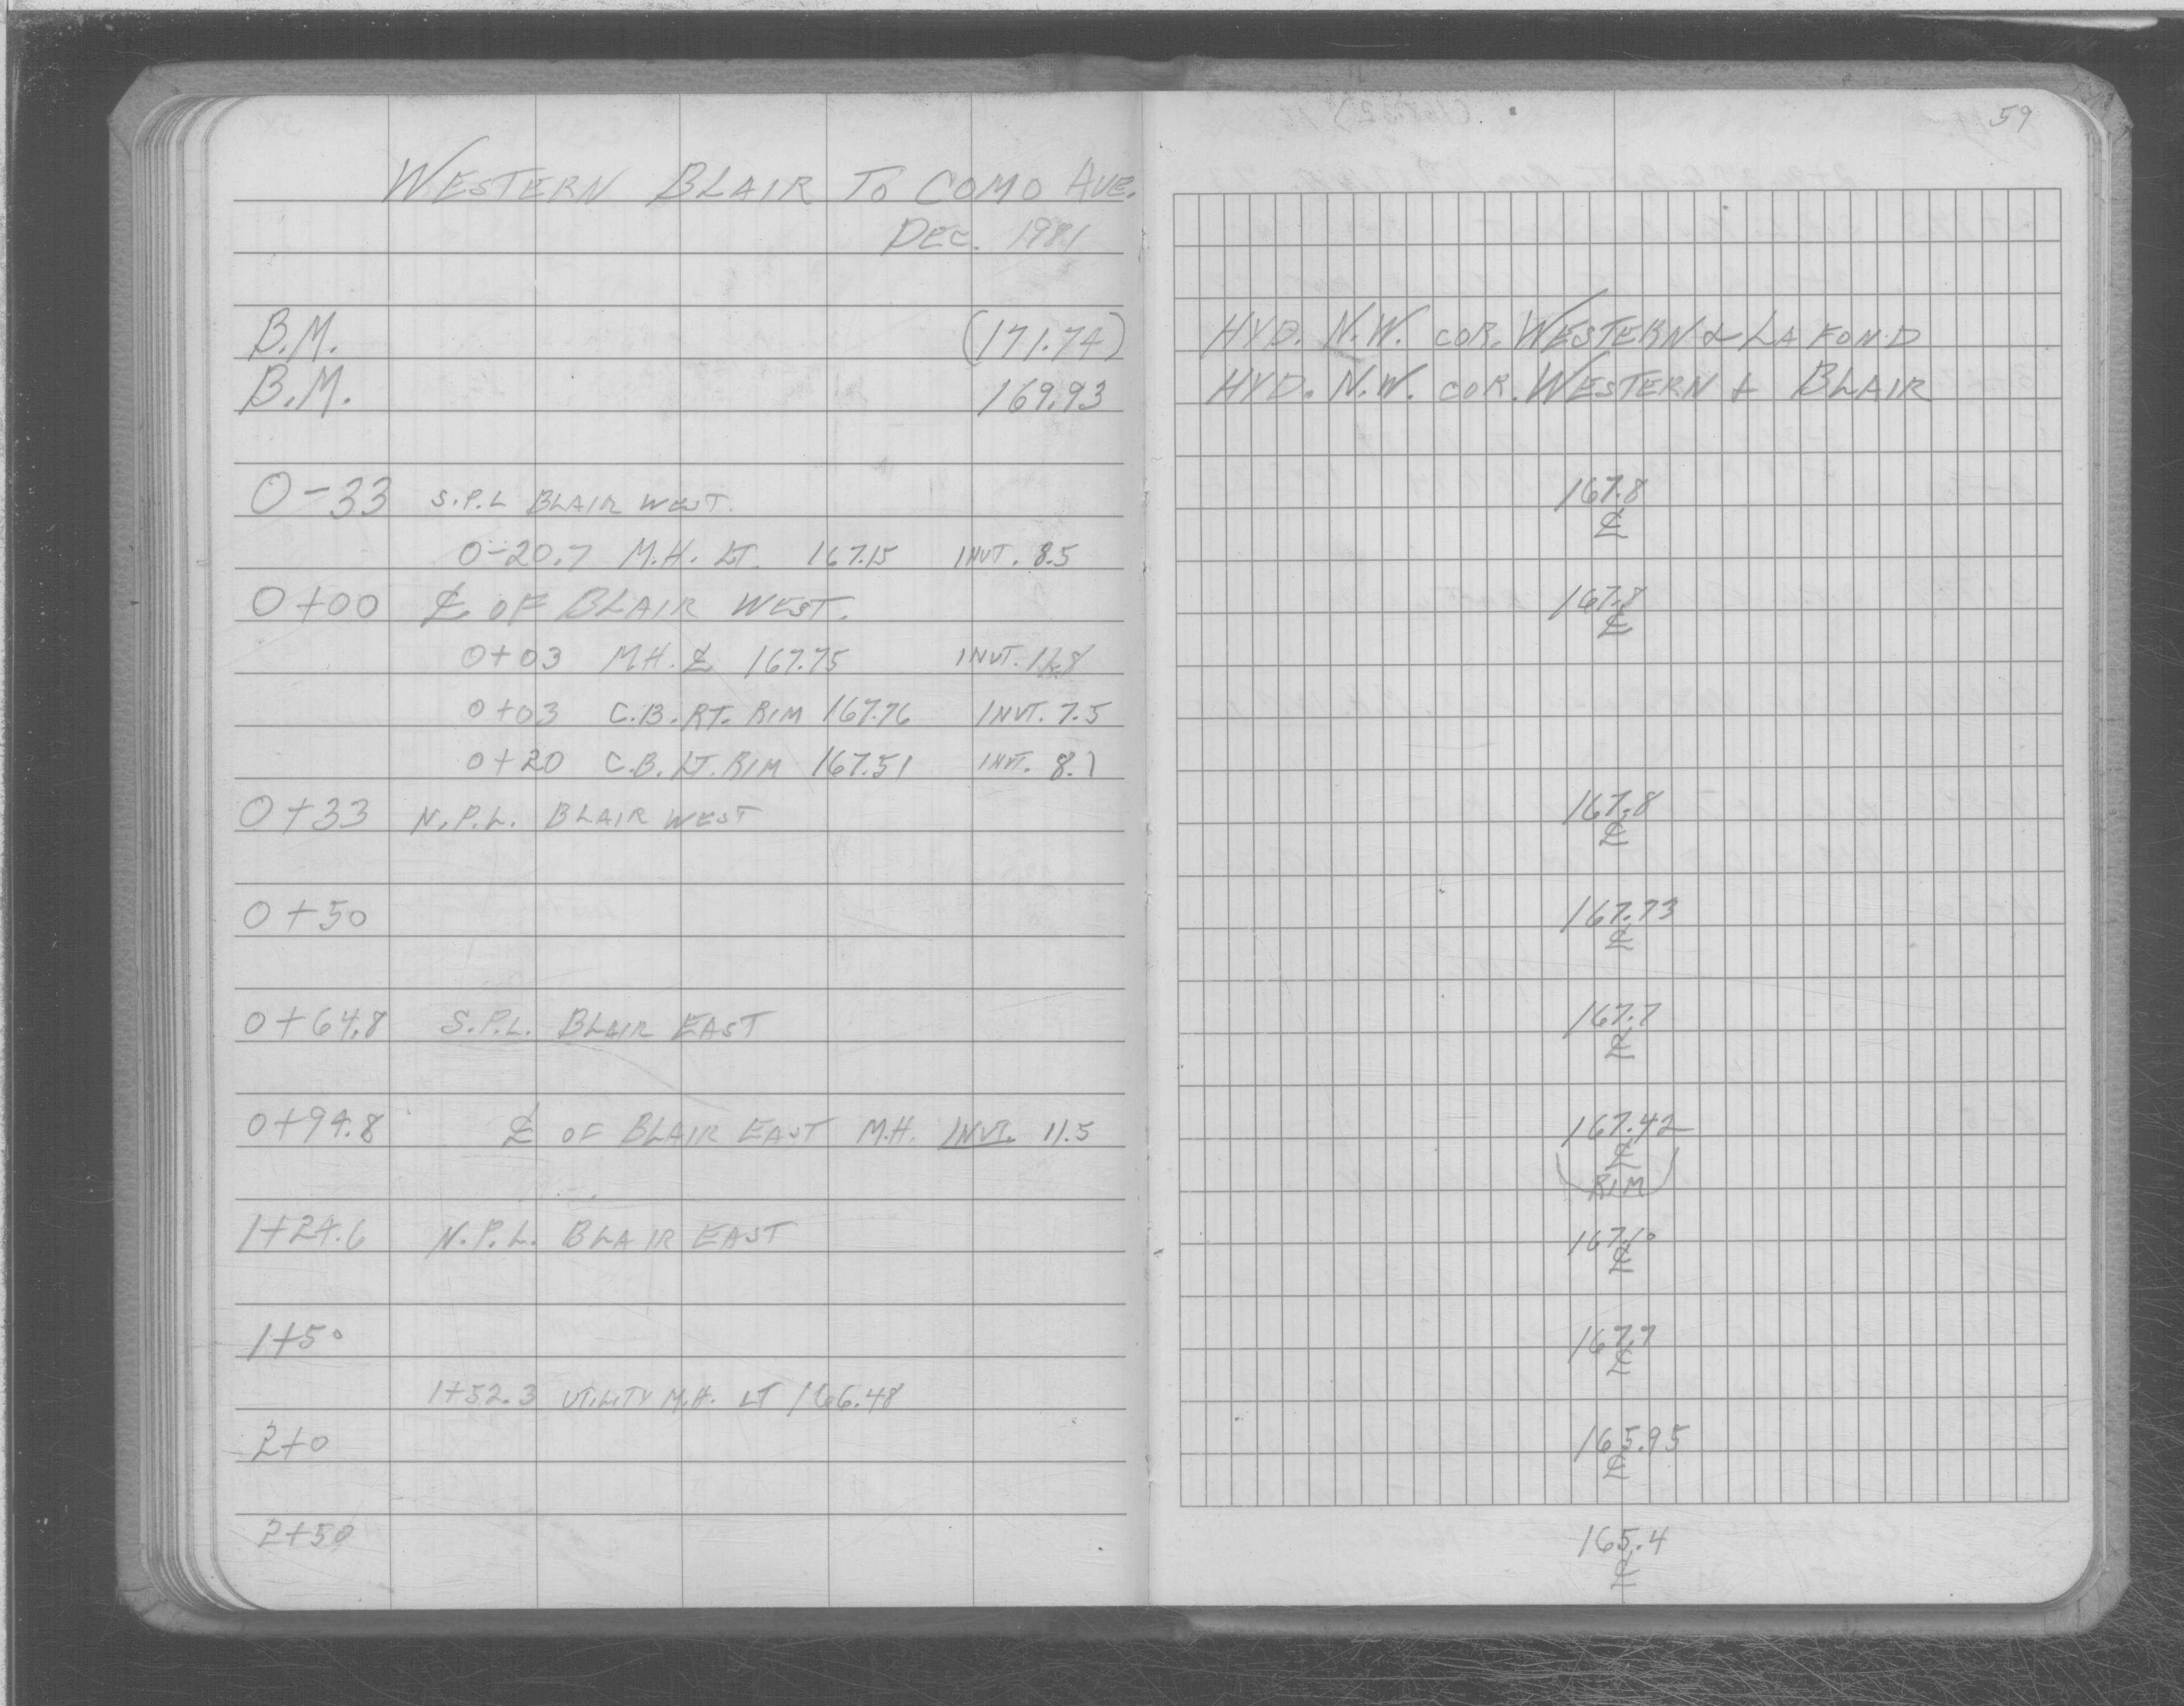 59
WESTERN BLAIR TO COMO AVE.
DEC. 1981
B.M. (171.74) HYD. N.W. COR. WESTERN & LAFOND
B.M. 169.93 HYD. N.W. COR. WESTERN & BLAIR
0-33 S.P.L BLAIR WEST. 167.8
℄
0-20.7 M.H. LT. 167.15 INVT. 8.5
0+00 ℄ OF BLAIR WEST. 167.8
℄
0+03 M.H. ℄ 167.75 INVT.
0+03 C.B. RT. RIM 167.76 INVT. 7.5
0+20 C.B. LT. RIM 167.51 INVT. 8.1
0+33 N.P.L. BLAIR WEST 167.8
℄
0+50 167.73
℄
0+64.8 S.P.L. BLAIR EAST 167.7
℄
0+94.8 ℄ OF BLAIR EAST M.H. INVT. 11.5 167.42
℄
(RIM)
1+24.6 N.P.L. BLAIR EAST 167.10
℄
1+50 167.7
℄
1+52.3 UTILITY M.H. LT 166.48
2+0 165.95
℄
2+50 165.4
℄